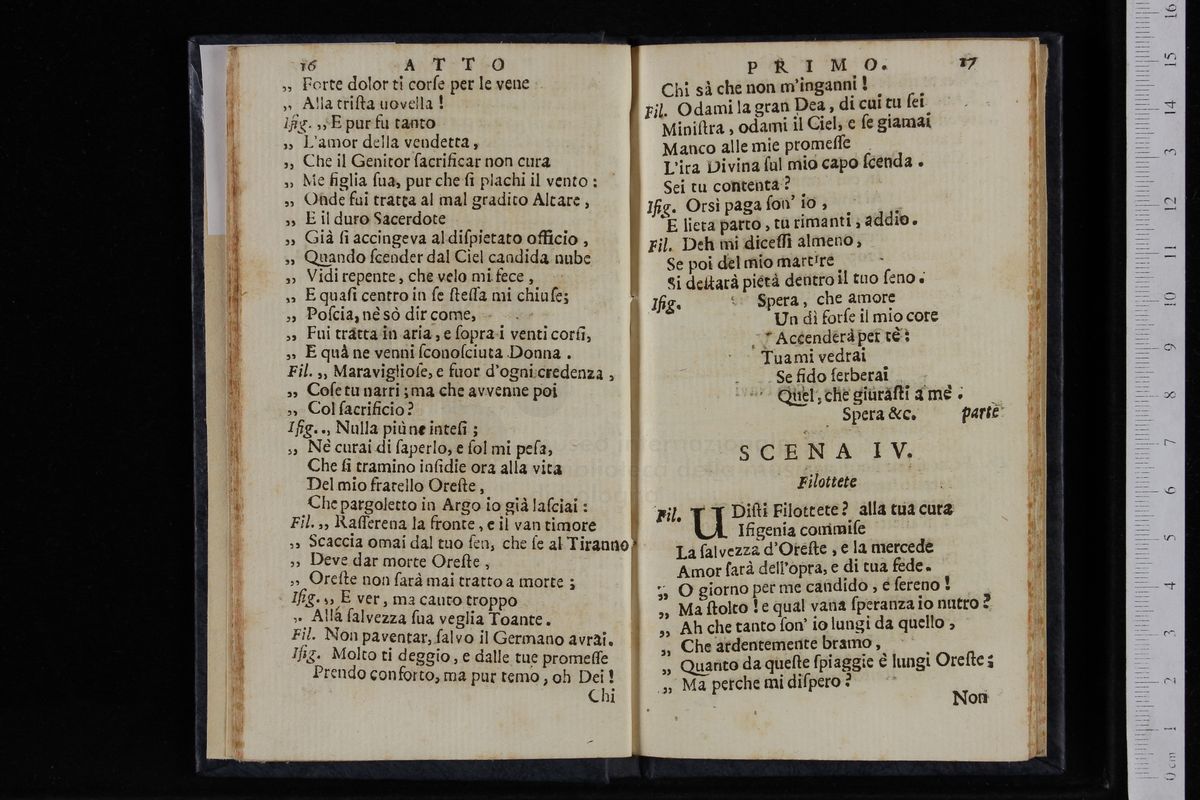 16 ATTO
„ Forte dolor ti corſe per le vene
„ Alla triſta uovella !
Ifig. „ E pur fu tanto
„ L'amor della vendetta ,
„ Che il Genitor ſacrificar non cura
„ Me figlia ſua, pur che ſi plachi il vento :
„ Onde fui tratta al mal gradito Altare ,
„ E il duro Sacerdote
„ Già ſi accingeva al diſpietato officio ,
„ Quando ſcender dal Ciel candida nube
„ Vidi repente , che velo mi fece ,
„ E quaſi centro in ſe ſteſſa mi chiuſe;
„ Poſcia, nè sò dir come,
„ Fui tratta in aria , e ſopra i venti corſi,
„ E quà ne venni ſconoſciuta Donna .
Fil. „ Maraviglioſe, e fuor d'ogni credenza ,
„ Coſe tu narri ; ma che avvenne poi
„ Col ſacrificio ?
Ifig. ., Nulla più ne inteſi ;
„ Nè curai di ſaperlo, e ſol mi peſa,
Che ſi tramino inſidie ora alla vita
Del mio fratello Oreſte ,
Che pargoletto in Argo io già laſciai :
Fil. „ Raſſerena la fronte , e il van timore
„ Scaccia omai dal tuo ſen, che ſe al Tiranno
„ Deve dar morte Oreſte ,
„ Oreſte non ſarà mai tratto a morte ;
Ifig. „ E ver , ma cauto troppo
„ Alla ſalvezza ſua veglia Toante .
Fil. Non paventar, ſalvo il Germano avrai.
Ifig. Molto ti deggio , e dalle tue promeſſe
Prendo conforto, ma pur temo , oh Dei !
Chi
PRIMO. 17
Chi sà che non m'inganni !
Fil. Odami la gran Dea , di cui tu ſei
Miniſtra , odami il Ciel, e ſe giamai
Manco alle mie promeſſe
L'ira Divina ſul mio capo ſcenda .
Sei tu contenta ?
Ifig. Orsì paga ſon' io ,
E lieta parto , tu rimanti , addio.
Fil. Deh mi diceſſi almeno,
Se poi del mio martire
Si deſtarà pietà dentro il tuo ſeno.
Ifig. Spera , che amore
Un dì forſe il mio core
Accenderà per tè :
Tu a mi vedrai
Se fido ſerberai
Quel, che giuraſti a mè .
Spera &c. parte
SCENA IV.
Filottete
Fil. UDiſti Filottete ? alla tua cura
Ifigenia commiſe
La ſalvezza d'Oreſte , e la mercede
Amor ſarà dell'opra, e di tua fede.
„ O giorno per me candido , e ſereno !
„ Ma ſtolto ! e qual vana ſperanza io nutro ?
„ Ah che tanto ſon' io lungi da quello ,
„ Che ardentemente bramo ,
„ Quanto da queſte ſpiaggie è lungi Oreſte ;
„ Ma perche mi diſpero ?
Non